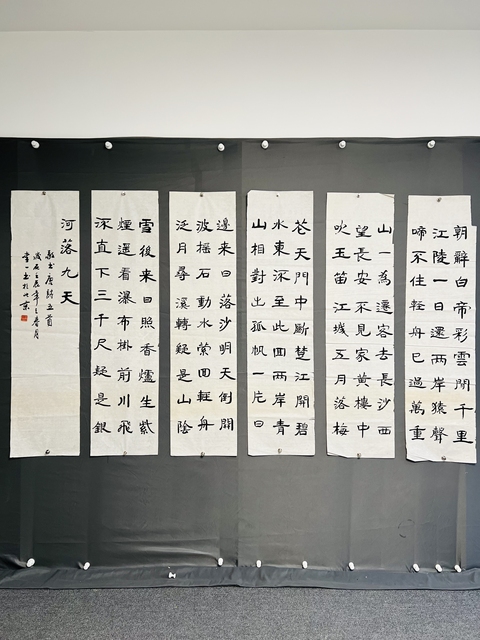 朝辭白帝彩雲間千里
江陵一日還兩岸猿聲
啼不住輕舟已過萬重
山一為遷客去長沙西
望長安不見家黃樓中
吹玉笛江城五月落梅
花天門中斷楚江開碧
水東流至此回兩岸青
山相對出孤帆一片日
邊來日落沙明天倒開
波搖石動水縈回輕舟
泛月尋溪轉疑是山陰
雪後來日照香爐生紫
煙遙看瀑布掛前川飛
流直下三千尺疑是銀
河落九天
唐詩五首
辰年之春月
书於北京